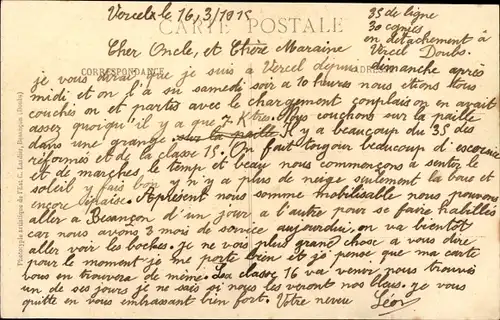 Vercel le 16/3/1915
CARTE POSTALE
35 de ligne
30 Cagnies
en détachement à
Vercel Doubs.
Cher Oncle, et Chère Maraine
CORRESPONDANCE
je vous dirai que je suis à Vercel depuis dimanche après
midi et on l'a su samedi soir a 10 heures nous étions tous
couchés on et partis avec le chargement complais on en avait
assez quoiqu'il y a que 7 Ktres. Nous couchons sur la paille
dans une grange sur la paille Il y a beaucoup du 35 des
réformés et de la classe 15. On fait toujour beaucoup d'escrime
et de marches, le temp et beau nous commençons a sentir le
soleil y fais bon y n'y a plus de neige seulement la boue et
encore épaisse. Apresent nous somme mobilisable nous pouvons
aller a Besançon d'un jour a l'autre pour se faire habillés
car nous avons 3 mois de service aujourdui, on va bientôt
aller voir les boches. je ne vois plus grand chose a vous dire
pour le moment je me porte bien et je pense que ma carte
vous en trouvera de même. Les classes 16 va venir nous trouvés
un de ses jours je ne sais si nous les veront nos bleus. je vous
quitte en vous embrassant bien fort. Votre neveu Léon
Phototypie artistique de l'Est C. Lardier, Besançon (Doubs)